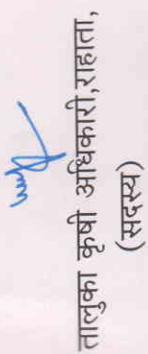 तालुका कृषी अधिकारी,राहाता,
(सदस्य)